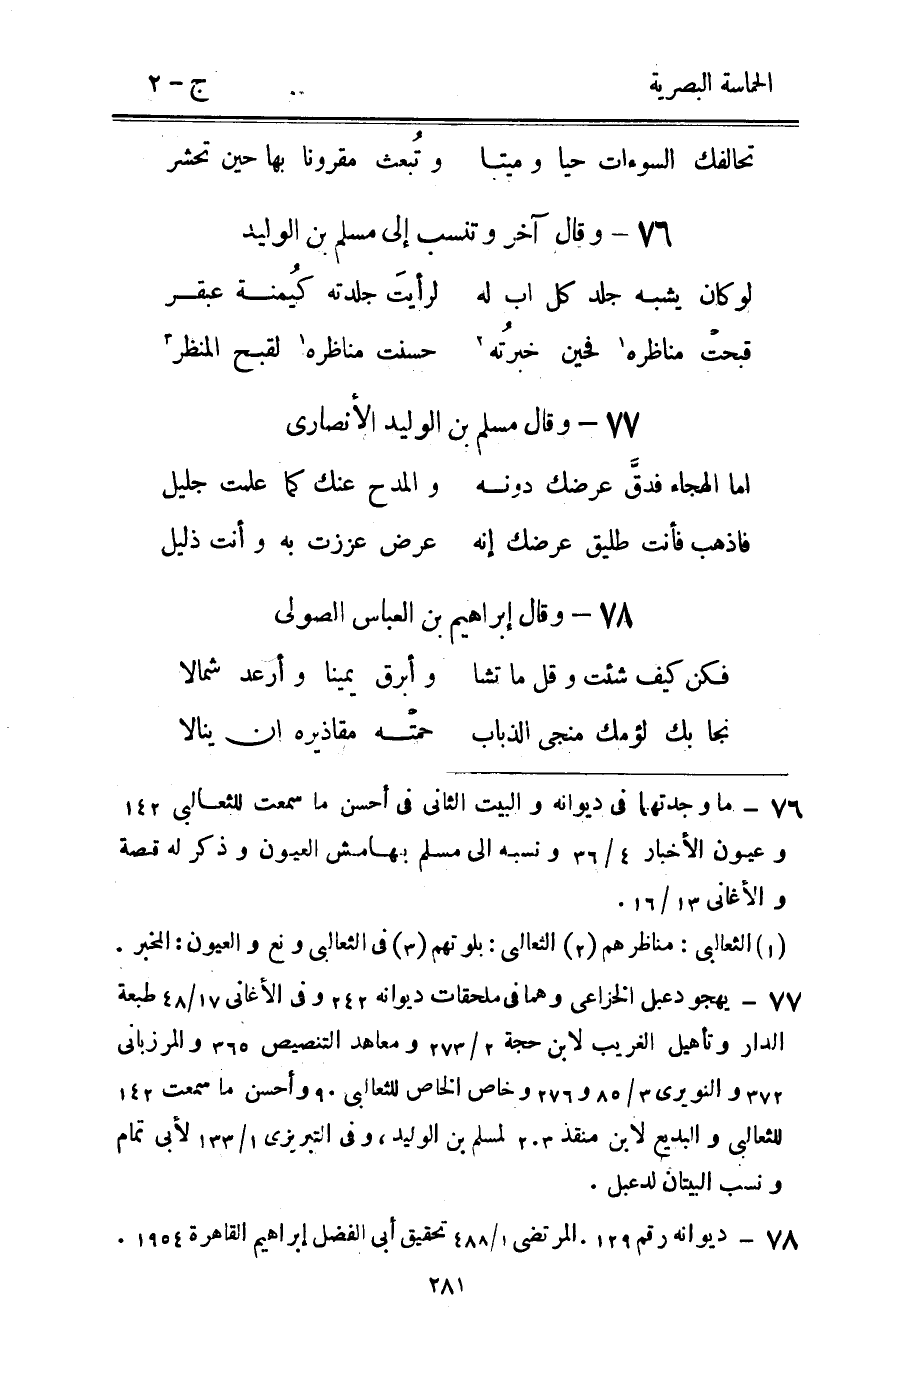 الحماسة البصرية ج – ٢
تحالفك السوءات حيا و ميتا و تُبعث مقرونا بها حين تحشر
٧٦ – و قال آخر و تنسب إلى مسلم بن الوليد
لوكان يشبه جلد كل اب له لرأيتَ جلدته كُيمنة عبقر
قبحتْ مناظره١ فحين خبرتُه٢ حسنت مناظره١ لقبح المنظر٣
٧٧ – و قال مسلم بن الوليد الأنصارى
اما الهجاء فدقَّ عرضك دونه و المدح عنك كما علمت جليل
فاذهب فأنت طليق عرضك إنه عرض عززت به و أنت ذليل
٧٨ – و قال إبراهيم بن العباس الصولى
فكن كيف شئت و قل ما تشا و أبرق يمينا و أرعد شمالا
نجا بك لؤمك منجى الذباب حمتْه مقاذيره ان ينالا
٧٦ – ما وجدتهما فى ديوانه و البيت الثانى فى أحسن ما سمعت للثعالبى ١٤٢
و عيون الأخبار ٤/ ٣٦ و نسبه الى مسلم بهامش العيون و ذكر له قصة
و الأغانى ١٣/ ١٦ .
(١) الثعالبى : مناظرهم (٢) الثعالبى : بلوتهم (٣) فى الثعالبى و نع و العيون : المخبر .
٧٧ – يهجو دعبل الخزاعى وهما فى ملحقات ديوانه ٢٤٢ و فى الأغانى ١٧/ ٤٨ طبعة
الدار و تأهيل الغريب لابن حجة ٢/ ٢٧٣ و معاهد التنصيص ٣٦٥ و المرزبانى
٣٧٢ و النويرى ٣/ ٨٥ و ٢٧٦ و خاص الخاص للثعالبى ٩٠ و أحسن ما سمعت ١٤٢
للثعالبى و البديع لابن منقذ ٢٠٣ لمسلم بن الوليد ، و فى التبريزى ١/ ١٣٣ لأبى تمام
و نسب البيتان لدعبل .
٧٨ – ديوانه رقم ١٢٩ . المرتضى ١/ ٤٨٨ تحقيق أبى الفضل إبراهيم القاهرة ١٩٥٤ .
٢٨١